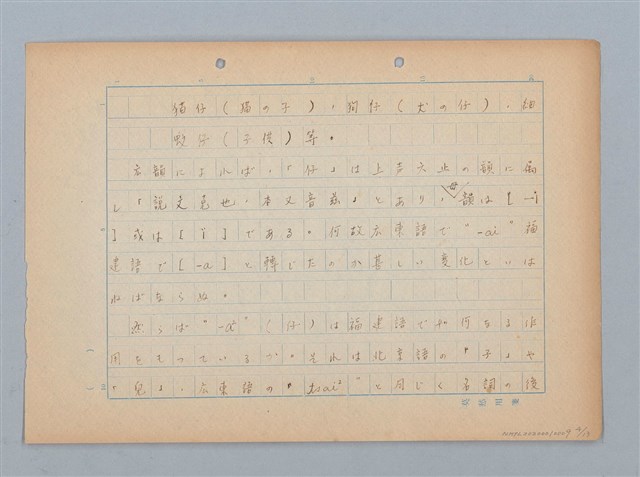 猫仔(猫の子)，狗仔(犬の仔)．細
蚊仔(子供)等。
古韻によれば，「仔」は上声六止の韻に属
し「説文克也，本又音茲」とあり，母韻は[－i
]或は[ï]である。何故広東語で"-ai"福
建語で[-a]と轉じたのか甚しい変化といは
ねばならぬ。
然らば"-a"(仔)は福建語でや何なる作
用をもっているか。それは北京語の「子」や
「兒」．広東語の" tsai²"と同じく名詞の後